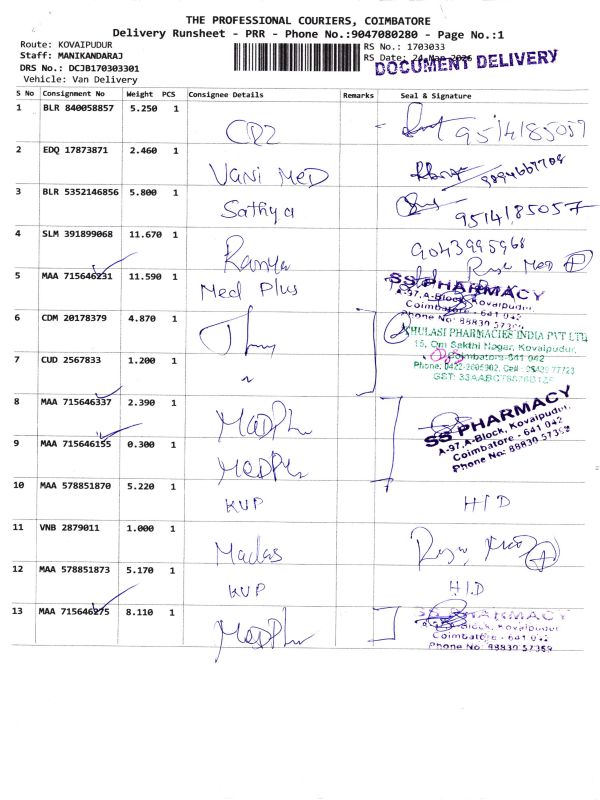 THE PROFESSIONAL COURIERS, COIMBATORE
Delivery Runsheet - PRR - Phone No.:9047080280 - Page No.:1
Route: KOVAIPUDUR
Staff: MANIKANDARAJ
DRS No.: DCJB170303301
Vehicle: Van Delivery
RS No.: 1703033
RS Date: 24-Mar-2026
DOCUMENT DELIVERY
S No Consignment No Weight PCS Consignee Details Remarks Seal & Signature
1 BLR 840058857 5.250 1 9514185057
2 EDQ 17873871 2.460 1 Vani Med
3 BLR 5352146856 5.800 1 Sathya 9514185057
4 SLM 391899068 11.670 1 Ramya 9043995968
5 MAA 715646231 11.590 1 Med Plus
SS PHARMACY
A-97, A-Block, Kovaipudur,
Coimbatore - 641 042
Phone No: 88830 57369
6 CDM 20178379 4.870 1
THULASI PHARMACIES INDIA PVT LTD
15, Om Sakthi Nagar, Kovaipudur,
Coimbatore-641 042
7 CUD 2567833 1.200 1 "
8 MAA 715646337 2.390 1 MedPlu
SS PHARMACY
A-97, A-Block, Kovaipudur,
Coimbatore - 641 042
Phone No: 88830 57369
9 MAA 715646155 0.300 1 MedPlu
10 MAA 578851870 5.220 1 KUP H/D
11 VNB 2879011 1.000 1
12 MAA 578851873 5.170 1 KUP H/D
13 MAA 715646275 8.110 1 MedPlu
SS PHARMACY
Coimbatore - 641 042
Phone No: 88830 57369